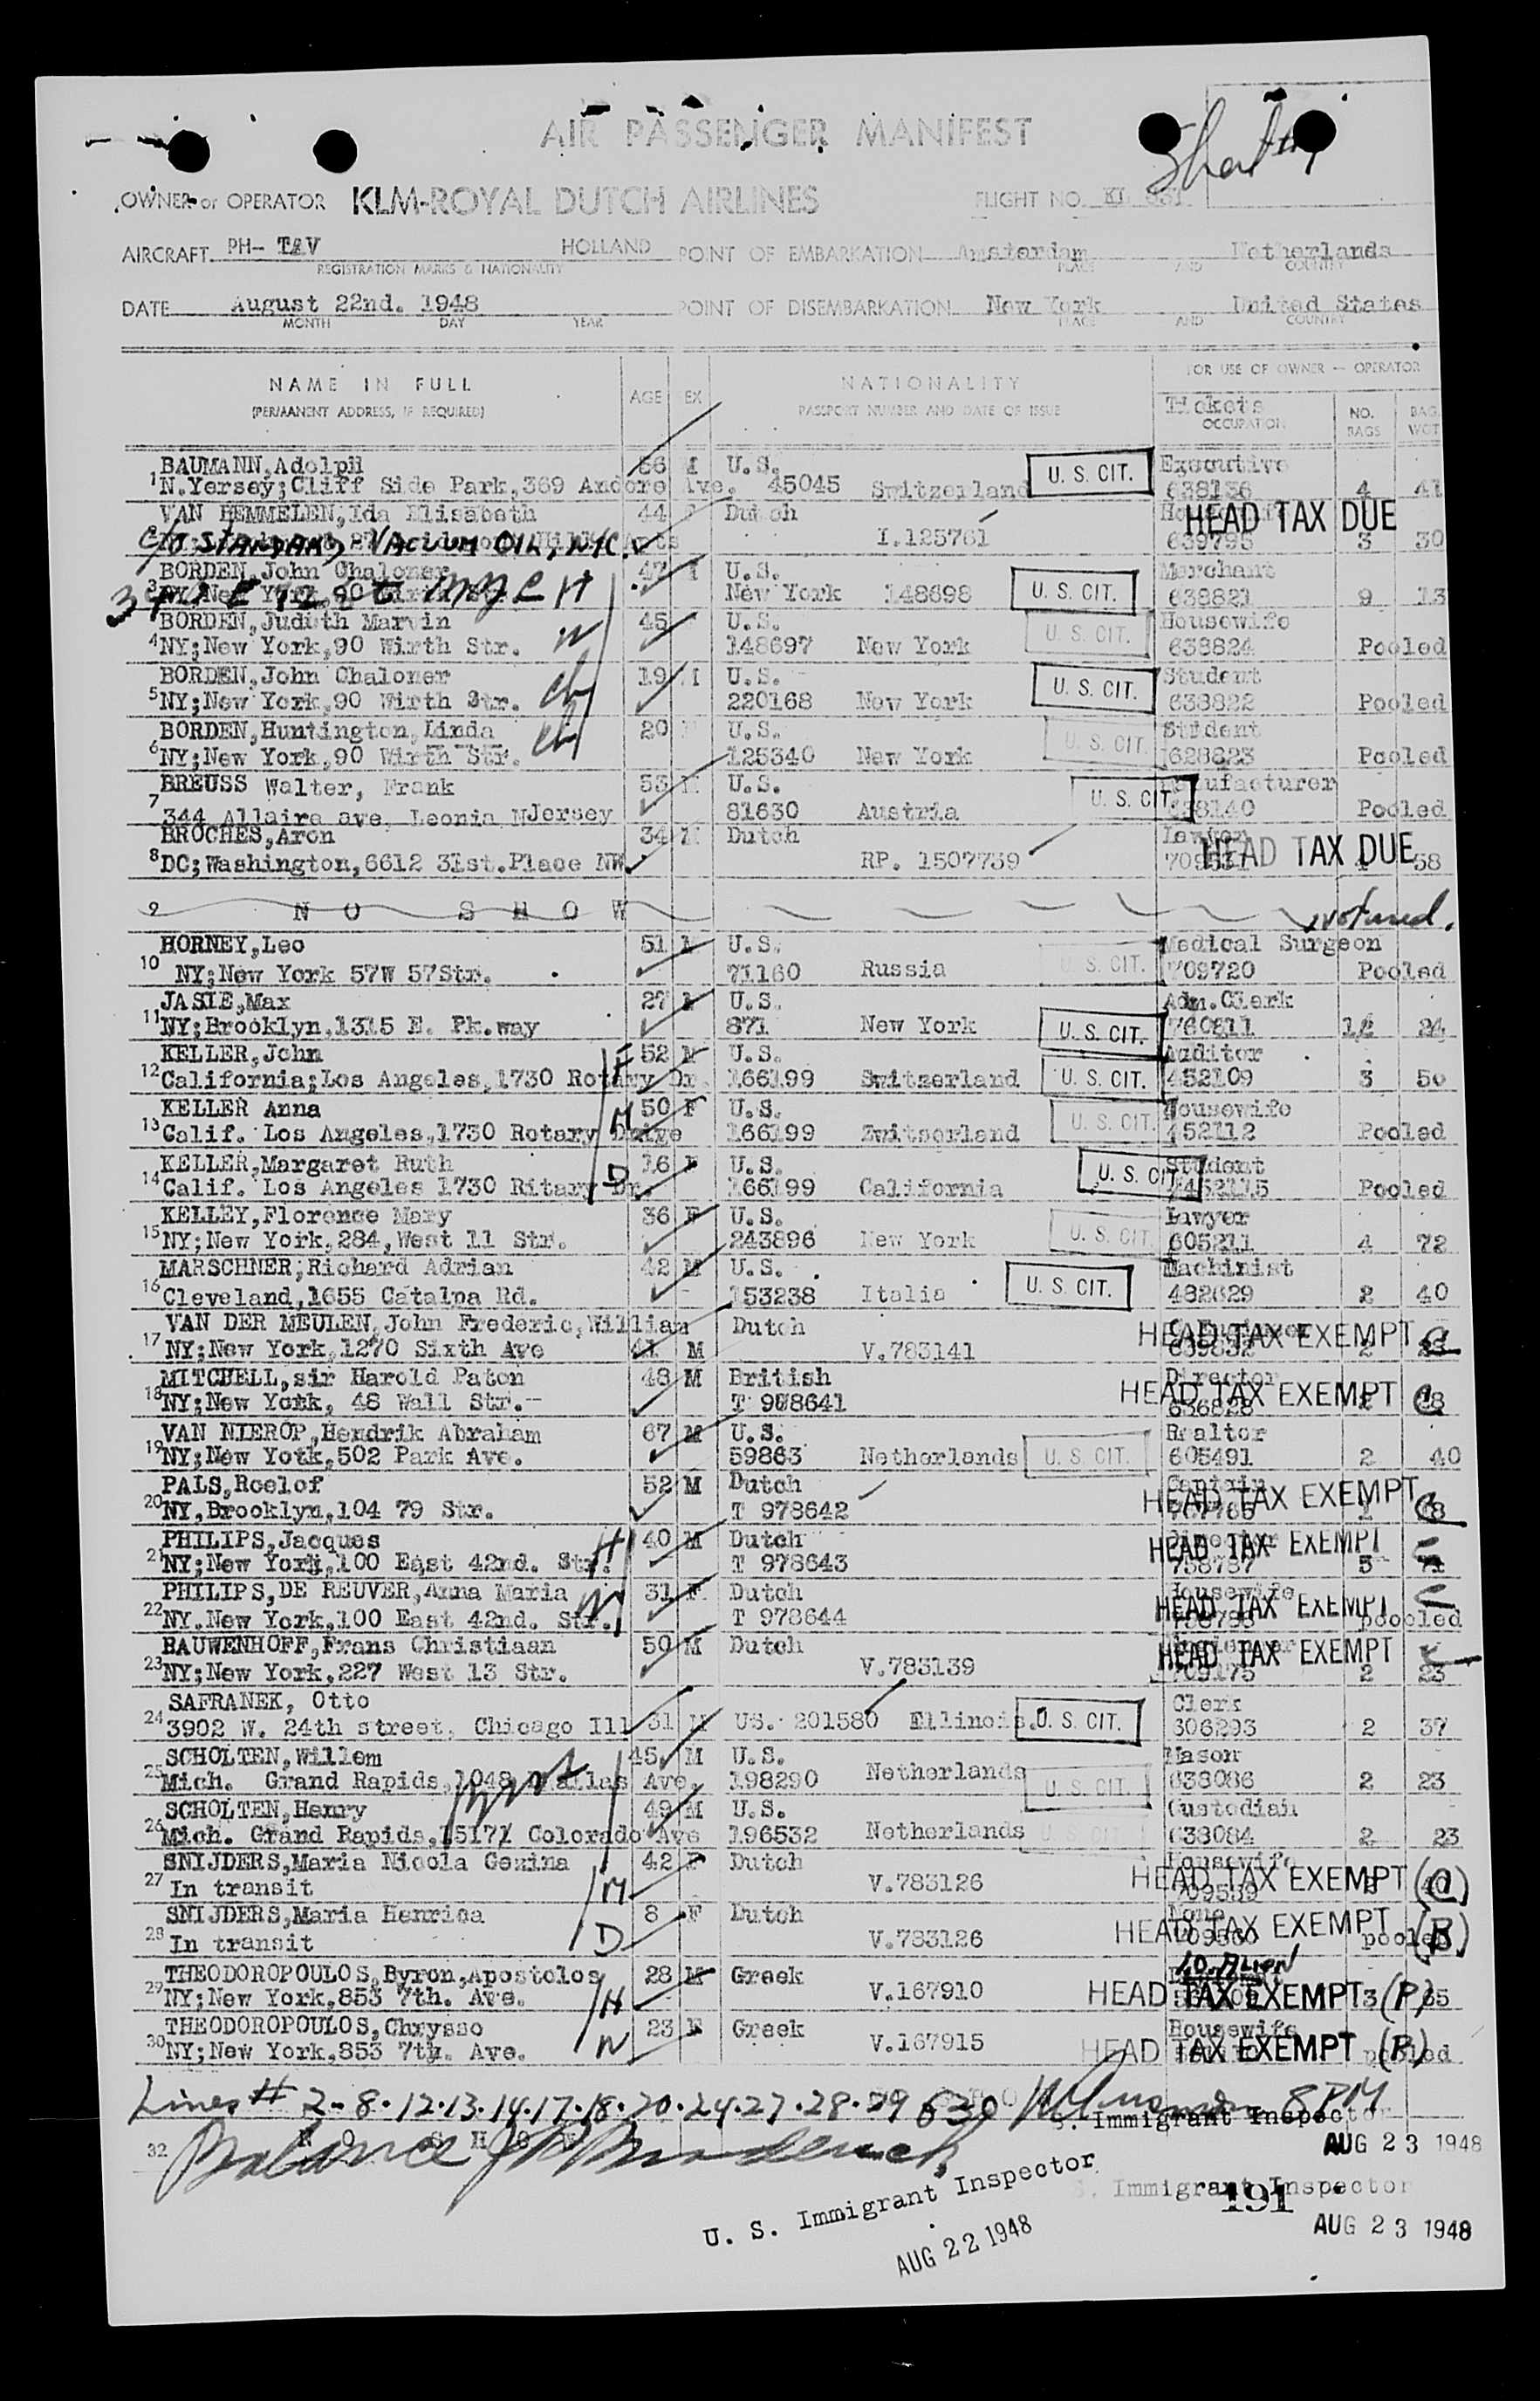 AIR PASSENGER MANIFEST
OWNER or OPERATOR KLM-ROYAL DUTCH AIRLINES FLIGHT NO. KL 631
AIRCRAFT. PH- TAV HOLLAND POINT OF EMBARKATION Amsterdam Netherlands
REGISTRATION MARKS & NATIONALITY PLACE AND COUNTRY
DATE August 22nd. 1948 POINT OF DISEMBARKATION New York United States
MONTH DAY YEAR PLACE AND COUNTRY
NAME IN FULL AGE SEX NATIONALITY FOR USE OF OWNER -- OPERATOR
(PERMANENT ADDRESS, IF REQUIRED) PASSPORT NUMBER AND DATE OF ISSUE Tickets OCCUPATION NO. BAGS BAG. WGT
BAUMANN,Adolph 56 M U.S. U. S. CIT. Executive
1 N.Yersey;Cliff Side Park,369 Andore Ave. 45045 Switzerland 638136 4 41
VAN HEMMELEN,Ida Elisabeth 44 F Dutch HEAD TAX DUE
2 C/O STANDARD VACUUM OIL, NYC. I.125761 639795 3 30
BORDEN,John Chaloner 47 M U.S. U. S. CIT. Merchant
3 NY;New York,90 New York 148698 638821 9 13
BORDEN,Judith Marvin 45 U.S. U. S. CIT. Housewife
4 NY;New York,90 Wirth Str. W 148697 New York 638824 Pooled
BORDEN,John Chaloner 19 M U.S. U. S. CIT. Student
5 NY;New York,90 Wirth Str. ch 220168 New York 638822 Pooled
BORDEN,Huntington,Linda 20 U.S. U. S. CIT. Student
6 NY;New York,90 Wirth Str. ch 125340 New York 628823 Pooled
BREUSS Walter, Frank 53 M U.S. U. S. CIT. Manufacturer
7 344 Allaire ave, Leonia NJersey 81630 Austria 638140 Pooled
BROCHES,Aron 34 M Dutch HEAD TAX DUE
8 DC;Washington,6612 31st.Place NW RP. 1507739 58
9 NO SHOW
HORNEY,Leo 51 M U.S. U. S. CIT. Medical Surgeon
10 NY;New York 57W 57Str. 71160 Russia 709720 Pooled
JASIE,Max 27 M U.S. U. S. CIT. Adm.Clerk
11 NY;Brooklyn,1315 E. Pk.way 871 New York 760811 24
KELLER,John F 52 M U.S. U. S. CIT. Auditor
12 California;Los Angeles,1730 Rotary Dr. 166199 Switzerland 452109 3 50
KELLER Anna M 50 F U.S. U. S. CIT. Housewife
13 Calif. Los Angeles,1730 Rotary Drive 166199 Zwitserland 452112 Pooled
KELLER,Margaret Ruth D 16 F U.S. U. S. CIT. Student
14 Calif. Los Angeles 1730 Ritary Dr. 166199 California 452115 Pooled
KELLEY,Florence Mary 36 F U.S. U. S. CIT. Lawyer
15 NY;New York,284,West 11 Str. 243896 New York 605211 4 72
MARSCHNER,Richard Adrian 42 M U.S. U. S. CIT. Machinist
16 Cleveland,1655 Catalpa Rd. 153238 Italie 482629 2 40
VAN DER MEULEN,John Frederic,William Dutch HEAD TAX EXEMPT
17 NY;New York,1270 Sixth Ave 41 M V.783141 639832 2 23
MITCHELL,sir Harold Paton 48 M British Director HEAD TAX EXEMPT
18 NY;New York, 48 Wall Str.- T 978641 636828
VAN NIEROP,Hendrik Abraham 67 M U.S. U. S. CIT. Realtor
19 NY;New Yotk,502 Park Ave. 59863 Netherlands 605491 2 40
PALS,Roelof 52 M Dutch Captain HEAD TAX EXEMPT
20 NY,Brooklyn,104 79 Str. T 978642
PHILIPS,Jacques H 40 M Dutch Director HEAD TAX EXEMPT
21 NY;New York,100 East 42nd. Str. T 978643 758787 5 71
PHILIPS,DE REUVER,Anna Maria W 31 F Dutch Housewife HEAD TAX EXEMPT
22 NY.New York,100 East 42nd. Str. T 978644 poooled
BAUWENHOFF,Frans Christiaan 50 M Dutch HEAD TAX EXEMPT
23 NY;New York,227 West 13 Str. V.783139 709175 2 23
SAFRANEK, Otto Clerk
24 3902 W. 24th street, Chicago Ill 31 M US. 201580 Ellinois. U. S. CIT. 306293 2 37
SCHOLTEN,Willem 45 M U.S. Mason
25 Mich. Grand Rapids,1048 Dallas Ave. 198290 Netherlands U. S. CIT. 638086 2 23
SCHOLTEN,Henry 49 M U.S. Custodian
26 Mich. Grand Rapids,1517 Colorado Ave 196532 Netherlands U. S. CIT. 638084 2 23
SNIJDERS,Maria Nicola Gezina M 42 F Dutch Housewife HEAD TAX EXEMPT (C)
27 In transit V.783126 709559
SNIJDERS,Maria Henrica D 8 F Dutch None HEAD TAX EXEMPT (B)
28 In transit V.783126 709560 pooled
THEODOROPOULOS,Byron,Apostolos H 28 M Greek HEAD TAX EXEMPT (P)
29 NY;New York,853 7th. Ave. V.167910 3 65
THEODOROPOULOS,Chrysso W 23 F Greek Housewife HEAD TAX EXEMPT (P)
30 NY;New York,853 7th. Ave. V.167915 pooled
Lines # 2-8-12-13-14-17-18-20-24-27-28-29 & 30 8 PM
S. Immigrant Inspector
32 NO SHOW Balance
AUG 23 1948
U. S. Immigrant Inspector
S. Immigrant Inspector
191
AUG 22 1948
AUG 23 1948